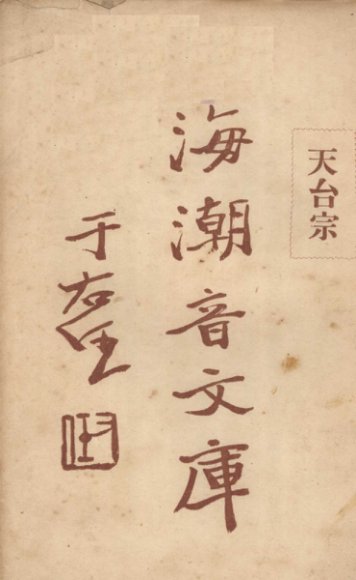 天台宗
海潮音文庫
于右任